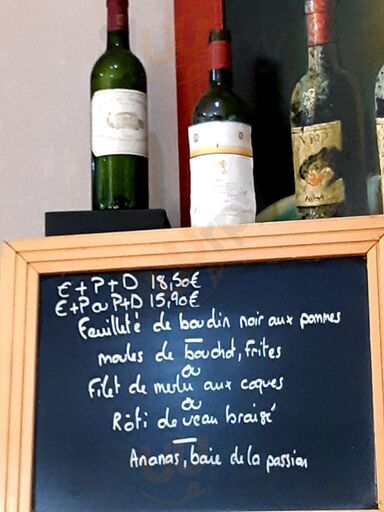 E+P+D 18,50€
E+P ou P+D 15,90€
Feuilleté de boudin noir aux pommes
moules de bouchot, frites
ou
Filet de merlu aux coques
ou
Rôti de veau braisé
Ananas, baie de la passion